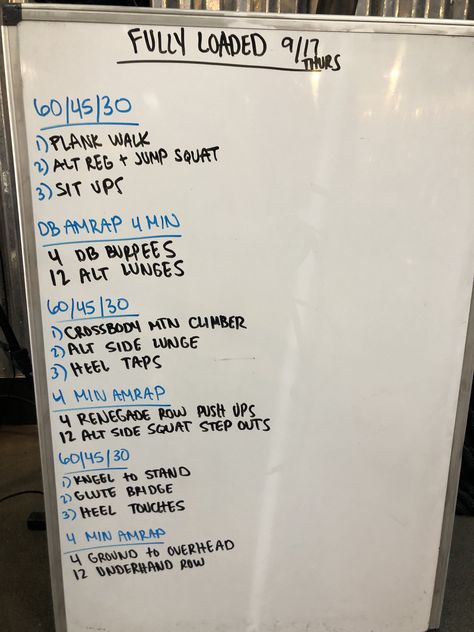 FULLY LOADED 9/17
THURS
60/45/30
1) PLANK WALK
2) ALT REG + JUMP SQUAT
3) SIT UPS
DB AMRAP 4 MIN
4 DB BURPEES
12 ALT LUNGES
60/45/30
1) CROSSBODY MTN CLIMBER
2) ALT SIDE LUNGE
3) HEEL TAPS
4 MIN AMRAP
4 RENEGADE ROW PUSH UPS
12 ALT SIDE SQUAT STEP OUTS
60/45/30
1) KNEEL to STAND
2) GLUTE BRIDGE
3) HEEL TOUCHES
4 MIN AMRAP
4 GROUND to OVERHEAD
12 UNDERHAND ROW